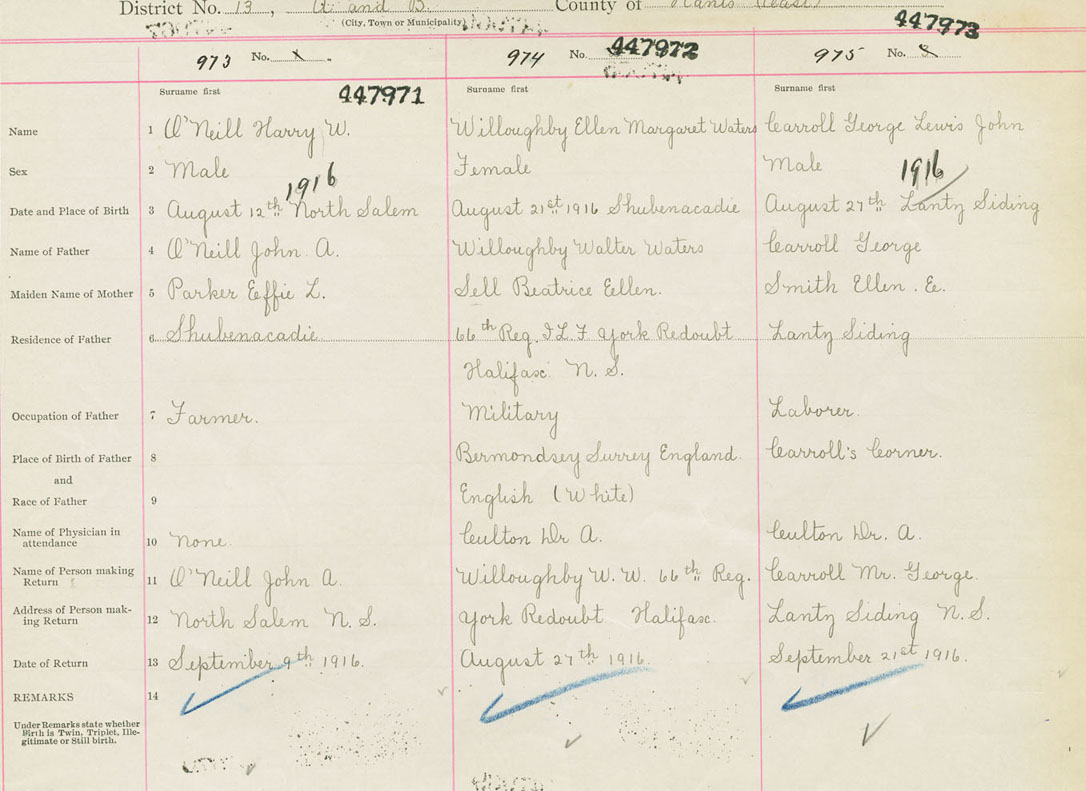 District No. 13, A and B. County of Hants (East)
(City, Town or Municipality)
973 No.
974 No. 447972
975 No. 8 447973
Surname first 447971
Surname first
Surname first
Name 1 O'Neill Harry W. Willoughby Ellen Margaret Waters Carroll George Lewis John
Sex 2 Male Female Male
1916 1916
Date and Place of Birth 3 August 12th North Salem August 21st 1916 Shubenacadie August 27th Lantz Siding
Name of Father 4 O'Neill John A. Willoughby Walter Waters Carroll George
Maiden Name of Mother 5 Parker Effie L. Sell Beatrice Eellen. Smith Ellen. E.
Residence of Father 6 Shubenacadie 66th Reg. York Redoubt Lantz Siding
Halifax N. S.
Occupation of Father 7 Farmer. Military Laborer.
Place of Birth of Father 8 Bermondsey Surrey England. Carroll's Corner.
and
Race of Father 9 English (White)
Name of Physician in
attendance 10 None. Culton Dr A. Culton Dr. A.
Name of Person making
Return 11 O'Neill John A. Willoughby W. W. 66th Reg. Carroll Mr. George.
Address of Person mak-
ing Return 12 North Salem N. S. York Redoubt Halifax. Lantz Siding N. S.
Date of Return 13 September 9th 1916. August 27th 1916. September 21st 1916.
REMARKS 14
Under Remarks state whether
Birth is Twin, Triplet, Ille-
gitimate or Still birth.